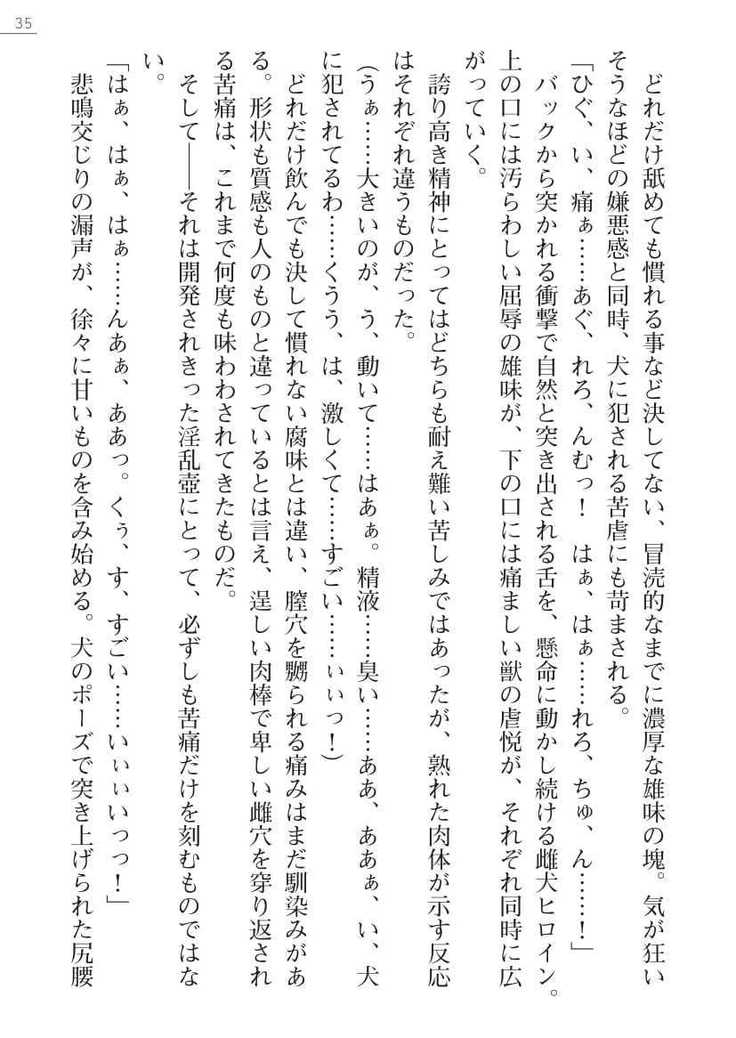 35
どれだけ舐めても慣れる事など決してない、冒涜的なまでに濃厚な雄味の塊。気が狂い
そうなほどの嫌悪感と同時、犬に犯される苦虐にも苛まされる。
「ひぐ、い、痛ぁ……あぐ、れろ、んむっ！　はぁ、はぁ……れろ、ちゅ、ん……！」
バックから突かれる衝撃で自然と突き出される舌を、懸命に動かし続ける雌犬ヒロイン。
上の口には汚らわしい屈辱の雄味が、下の口には痛ましい獣の虐悦が、それぞれ同時に広
がっていく。
誇り高き精神にとってはどちらも耐え難い苦しみではあったが、熟れた肉体が示す反応
はそれぞれ違うものだった。
（うぁ……大きいのが、う、動いて……はあぁ。精液……臭い……ああ、ああぁ、い、犬
に犯されてるわ……くうう、は、激しくて……すごい……ぃぃっ！）
どれだけ飲んでも決して慣れない腐味とは違い、膣穴を嬲られる痛みはまだ馴染みがあ
る。形状も質感も人のものと違っているとは言え、逞しい肉棒で卑しい雌穴を穿り返され
る苦痛は、これまで何度も味わわされてきたものだ。
そして――それは開発されきった淫乱壺にとって、必ずしも苦痛だけを刻むものではな
い。
「はぁ、はぁ、はぁ……んあぁ、ああっ。くぅ、す、すごい……いぃぃいっっ！」
悲鳴交じりの漏声が、徐々に甘いものを含み始める。犬のポーズで突き上げられた尻腰